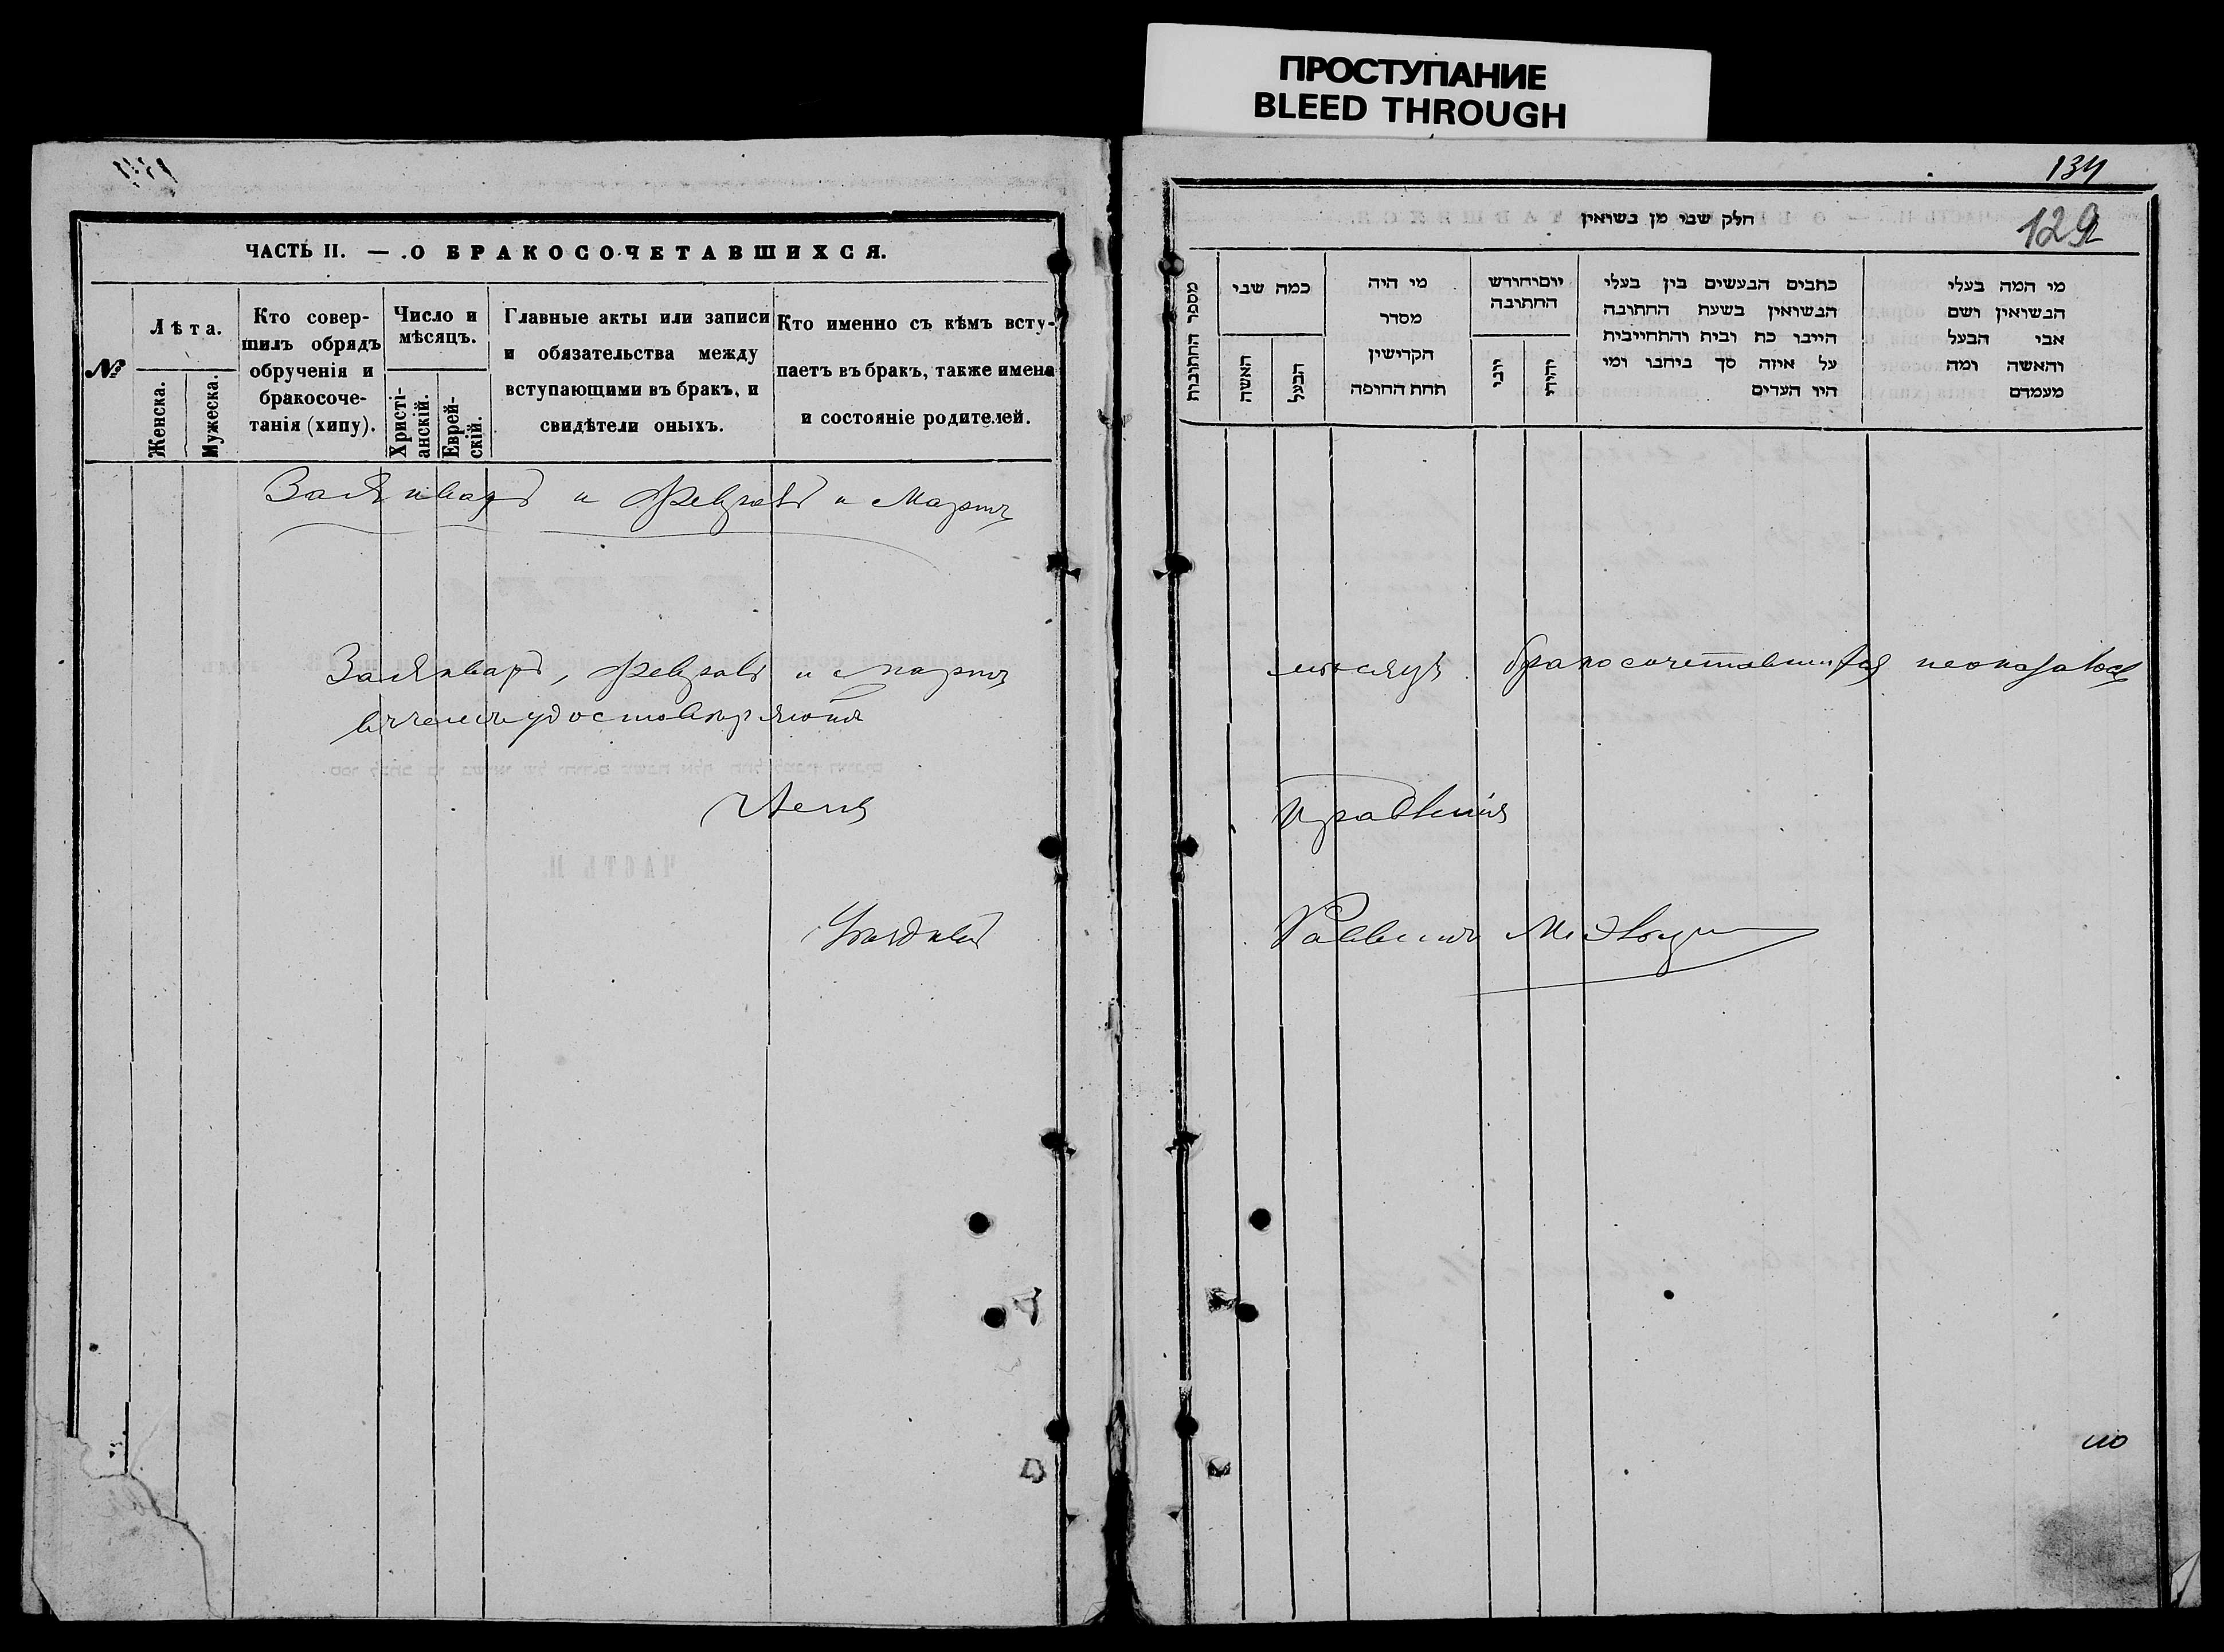 ПРОСТУПАНИЕ
BLEED THROUGH
ЧАСТЬ II. — О БРАКОСОЧЕТАВШИХСЯ.
№
Лѣта.
Женска.
Мужеска.
Кто совер-
шилъ обрядъ
обрученія и
бракосоче-
танія (хипу).
Число и
мѣсяцъ.
Христі-
анскій.
Еврей-
скій.
Главные акты или записи
и обязательства между
вступающими въ бракъ, и
свидѣтели оныхъ.
Кто именно съ кѣмъ всту-
паетъ въ бракъ, также имена
и состояніе родителей.
За Январь и Февраль и Мартъ
За Январь, Февраль и Мартъ
въ чемъ удостовѣряютъ
Члены
134
129
חלק שני מן נשואין
מספר החתונות
כמה שני
האשה
הבעל
מי היה
מסדר
הקדישין
תחת החופה
יום וחודש
החתונה
יוני
יהודי
כתבים הנעשים בין בעלי
הנשואין בשעת החתונה
היינו כח ובית והתחייבות
על איזה סך ביחנו ומי
היו העדים
מי המה בעלי
הנשואין ושם
אבי הבעל
והאשה ומה
מעמדם
мѣсяцъ бракосочетавшихся неоказалось
Правленія
Раввинъ